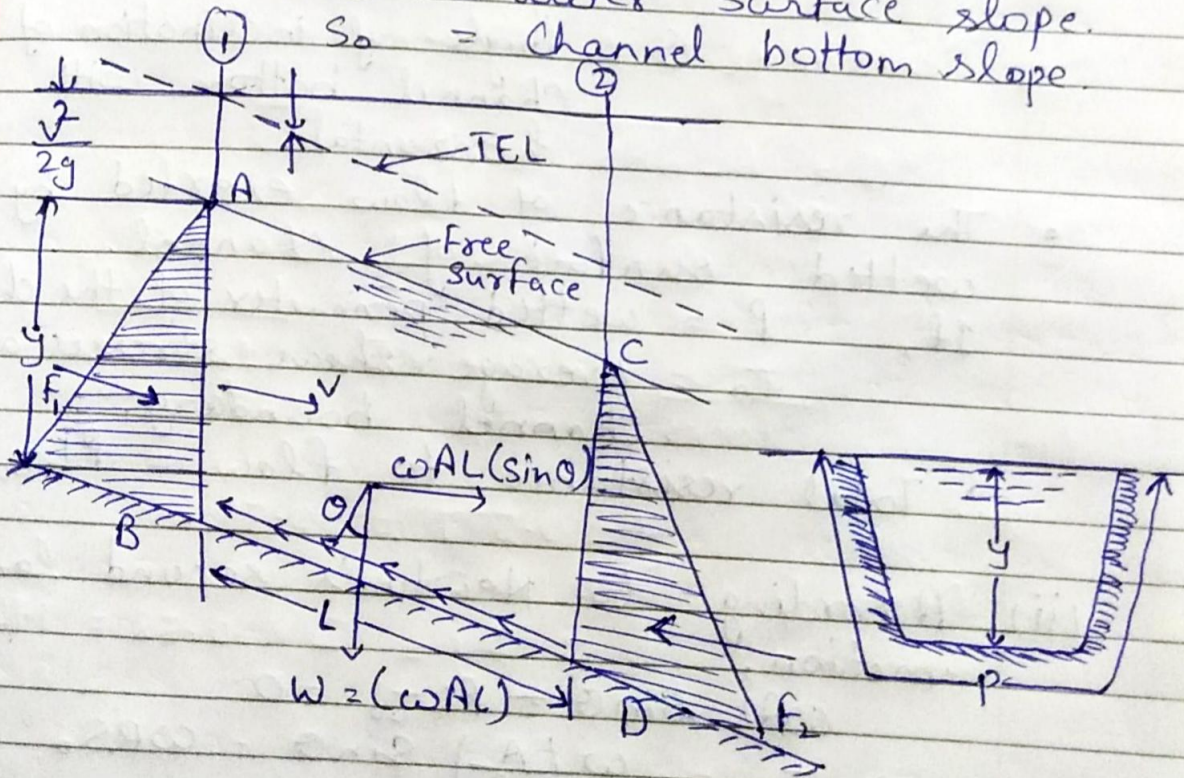 surface slope.
S₀ = Channel bottom slope
1
2
V
2g
TEL
A
Free
Surface
C
y
F₁
V
ωAL(sinθ)
θ
B
L
y
W = (ωAL)
D
F₂
P